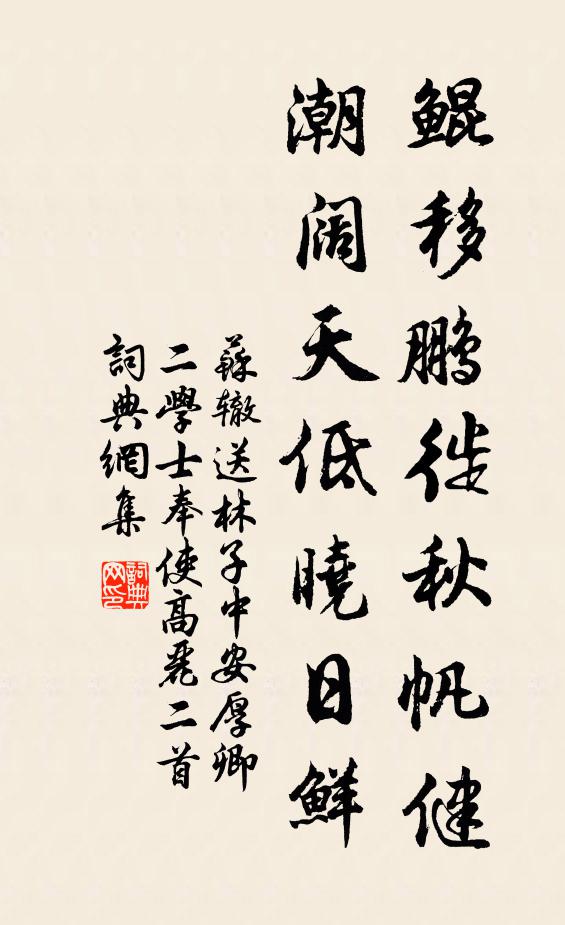 鲲移鹏徙秋帆健
潮阔天低曉日鮮
蘇辙送林子中安厚卿
二學士奉使高麗二首
詞典網集
詞典网印